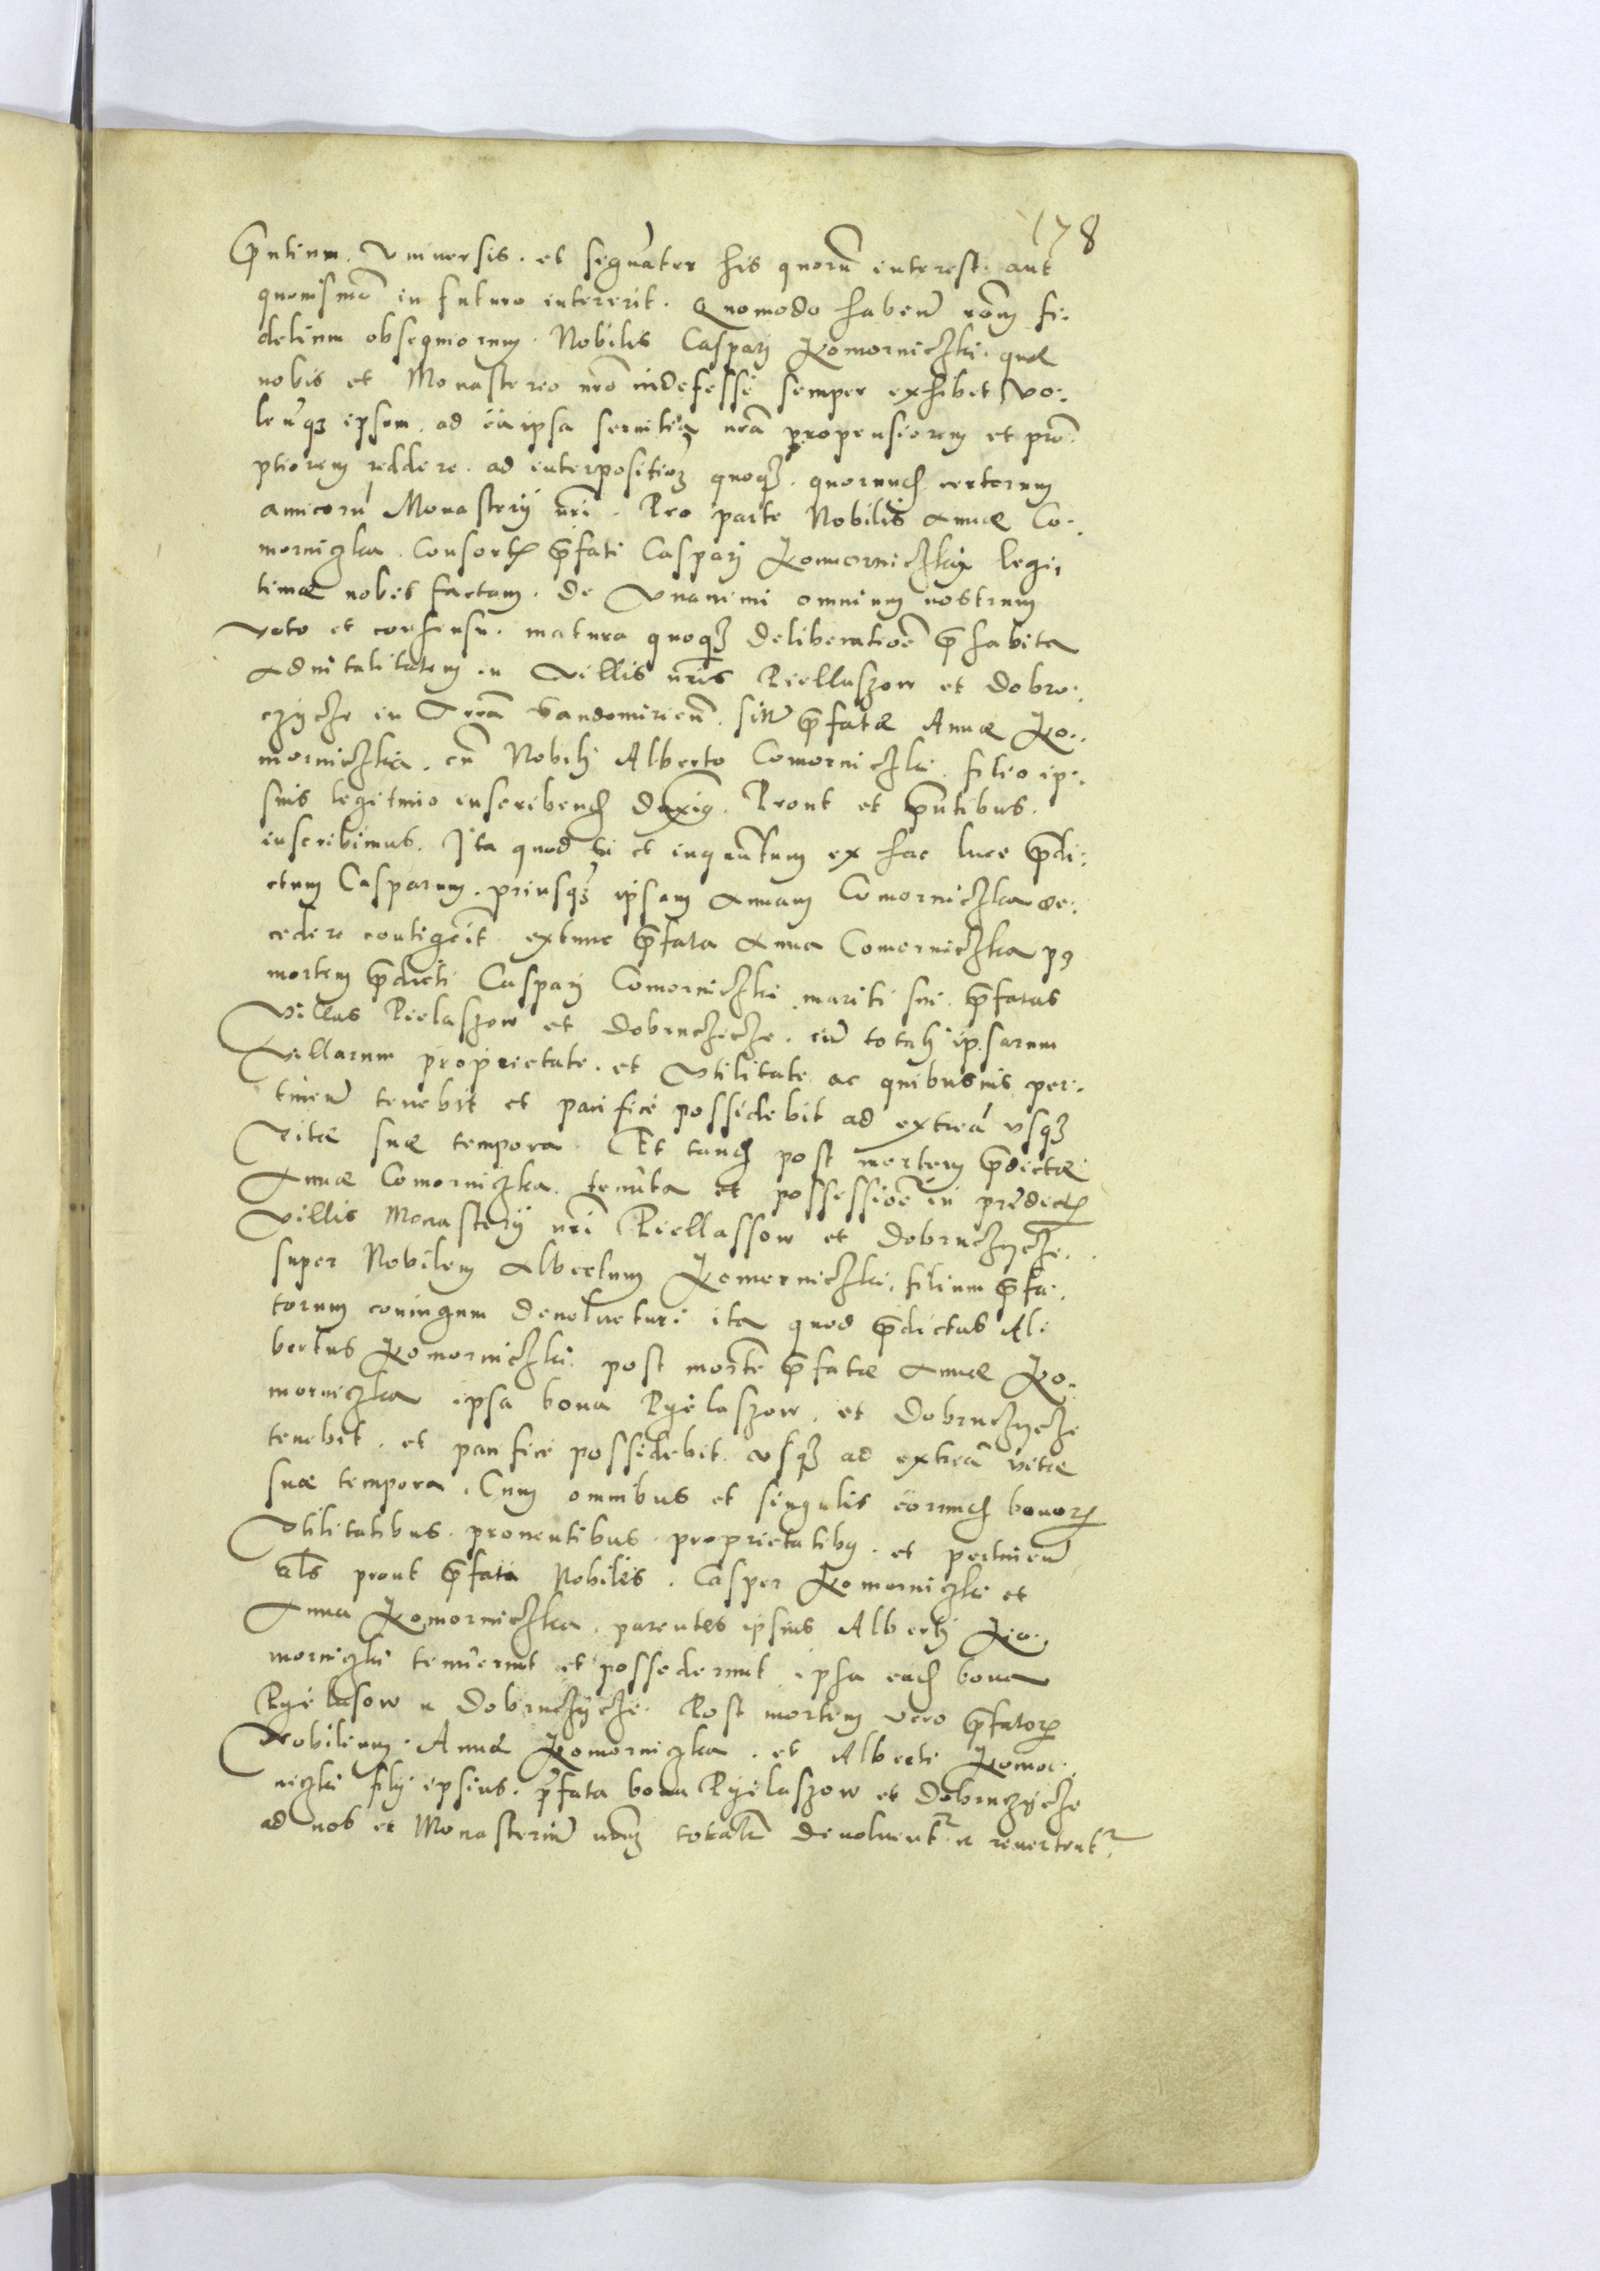 178
p̄ntium. Vniuersis. et signāter his quorū interest. aut
quouismō in futuro intererit. Quomodo habeñ rōm̄ fi:
delium obsequiorum. Nobilis Caspari Komorniczki. quæ
nobis et Monasterio nr̄o indefesse semper exhibet, vo:
leñqȝ ipsum. ad ea ipsa seruitia nr̄a propensiorem et prō:
ptiorem reddere. ad interpositioȝ quoqȝ. quorund̄ certorum
amicorū Monasterij nr̄i. Pro parte Nobilis Annæ Co:
morniczka. Consortis p̄fati Caspari Komorniczki legi:
timæ nobis factam. de Vnanimi omnium nostrum
voto et consensu. matura quoqȝ deliberatioē p̄habita
Aduitalitatem in Villis nr̄is Piellaszow et dobro:
czycze in Terrā Sandomirieñ. sitis p̄fatæ Annæ Ko:
morniczka. cū Nobili Alberto Comorniczki. filio ip:
sius legitimo inscribend̄ duxim. Prout et p̄ntibus.
inscribimus. Ita quod si et inquātum ex hac luce p̄di:
ctum Casparum. priusqȝ ipsam Annam Comorniczka de:
cedere contigerit. extunc p̄fata Anna Comorniczka pꝰ
mortem p̄dicti Caspari Comorniczki mariti sui. p̄fatas
Villas Pielaszow et dobruczicze. cū totali ipsarum
Villarum proprietate. et Vtilitate ac quibusuis per:
tineñ tenebit et pacifice possidebit ad extrea vsqȝ
Vitæ suæ tempora. Et tand̄ post mortem p̄dictæ
Annæ Comorniczka. tenuta et possessioē in prædictis
villis Monasterij nr̄i Piellassow et dobruczycze.
super Nobilem Albertum Komorniczki. filium p̄fa:
torum coniugum deuoluetur: ita quod p̄dictus Al:
bertus Komorniczki. post mortē p̄fatæ Annæ Ko:
morniczka ipsa bona Pyelaszow. et Dobruczycze
tenebit. et pacifice possidebit. vsqȝ ad extrea vitæ
suæ tempora. Cum omnibus et singulis eorund̄ bonorum
Vtilitatibus. prouentibus. proprietatibꝰ. et pertineñ
als prout p̄fata Nobiles. Casper Komorniczki et
Anna Komorniczka. parentes ipsius Alberti Ko:
morniczki tenuerunt et possederunt. ipsa ead̄ bona
Pyelasow et Dobruczycze. Post mortem vero p̄fatorum
Nobilium. Annæ Komorniczka. et Alberti Komor:
niczki filij ipsius. p̄fata bona Pyelaszow et Dobruczycze
ad nos et Monasteriū nr̄m totalr̄ deuoluent̃ et reuertent̃.